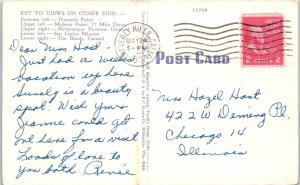 KEY TO VIEWS ON OTHER SIDE:—
Extreme left — Pinnacle Point
Upper left — Midway Point, 17 Mile Drive
Upper right — Picturesque Business District
Lower left — San Carlos Mission
Lower right — The Beach, Carmel
11719
POST CARD
Dear Miss Hoot —
Just had a weeks
vacation up here
Surely is a beauty
spot. Wish you &
Jeanne could get
out here for a visit
Loads of love to
you both Renee
Miss Hazel Hoot
422 W Deming Pl.
Chicago 14
Illinois